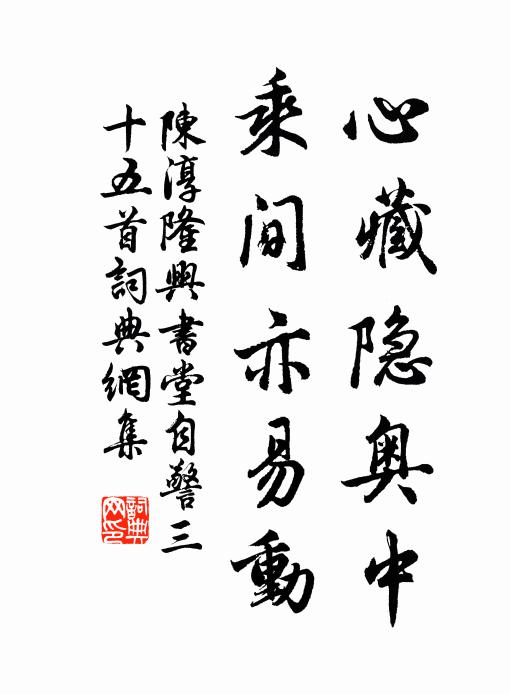 心藏隐奥中
乘间亦易動
陳淳隆興書堂自警三
十五首詞典網集
詞典
网印